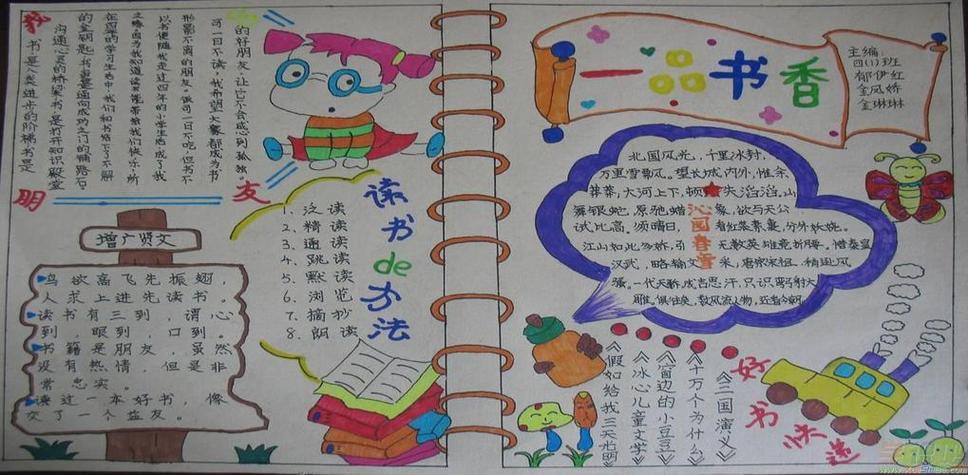 我
的
朋
友
书是人类进步的阶梯书是
沟通心灵的桥梁书是打开知识殿堂
的金钥匙书重是通向成功之门的铺路石
在四年的学习生活中我们和书结下了不解
之缘因为我知道读书能带给我们快乐所
以书伴随我走过四年的小学生活成了我
形影不离的朋友。做可一日不吃,但书不
可一日不读,我希望大家都成为书
的好朋友,让它不会感到孤独。
增广贤文
鸟欲高飞先振翅,
人求上进先读书。
读书有三到,谓心
到,眼到,口到。
书籍是朋友,虽然
没有热情,但是非
常忠实。
读过一本好书,像
交了一个益友。
读书de方法
1、泛读
2、精读
3、通读
4、跳读
5、默读
6、浏览
7、摘抄
8、朗读
一品书香
主编:
四(1)班
郁伊红
金凤娇
金琳琳
沁园春雪
北国风光,千里冰封,
万里雪飘。望长城内外,惟余
莽莽,大河上下,顿失滔滔,山
舞银蛇,原驰蜡象,欲与天公
试比高。须晴日,看红装素裹,分外妖娆。
江山如此多娇,引无数英雄竞折腰。惜秦皇
汉武,略输文采,唐宗宋祖,稍逊风
骚。一代天骄,成吉思汗,只识弯弓射大
雕。俱往矣,数风流人物,还看今朝。
好书快递
《三国演义》
《十万个为什么》
《窗边的小豆豆》
《冰心儿童文学》
《假如给我三天光明》